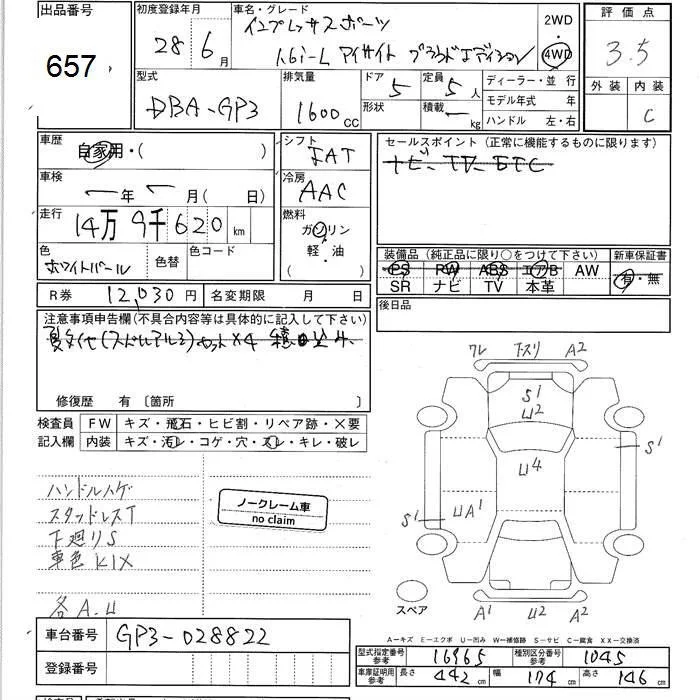 出品番号
657
初度登録年月
28年6月
車名・グレード
インプレッサスポーツ
1.6i-L アイサイト プラウドエディション
2WD
・
4WD
評価点
3.5
外装 内装
C
型式
DBA-GP3
排気量
1600cc
ドア
5
定員
5人
形状
積載
kg
ディーラー・並行
モデル年式 年
ハンドル 左・右
車歴
自家用・( )
車検
年 月( 日)
走行
14万9千620km
色
ホワイトパール
色替
色コード
シフト
IAT
冷房
AAC
燃料
ガソリン
軽・油
( )
セールスポイント (正常に機能するものに限ります)
ナビ TV ETC
装備品 (純正品に限り○をつけて下さい)
PS RW ABS エアB AW
SR ナビ TV 本革
新車保証書
有・無
R券 12,030円
名変期限 月 日
後日品
注意事項申告欄(不具合内容等は具体的に記入して下さい)
修復歴 有 〔箇所 〕
検査員
記入欄
FW キズ・飛石・ヒビ割・リペア跡・×要
内装 キズ・汚レ・コゲ・穴・スレ・キレ・破レ
ハンドルハゲ
スタッドレスT
下廻りS
車色K1X
各A.U
ノークレーム車
no claim
ワレ 下スリ A2
S1
U2
S1
U4
UA1
S1
スペア
A1 U2 A2
A―キズ E―エクボ U―凹み W―補修跡 S―サビ C―腐食 XX―交換済
車台番号 GP3-028822
登録番号
型式指定番号
参考
16965
種別区分番号
参考
1045
車庫証明用
参考
長さ 442cm
幅 174cm
高さ 146cm